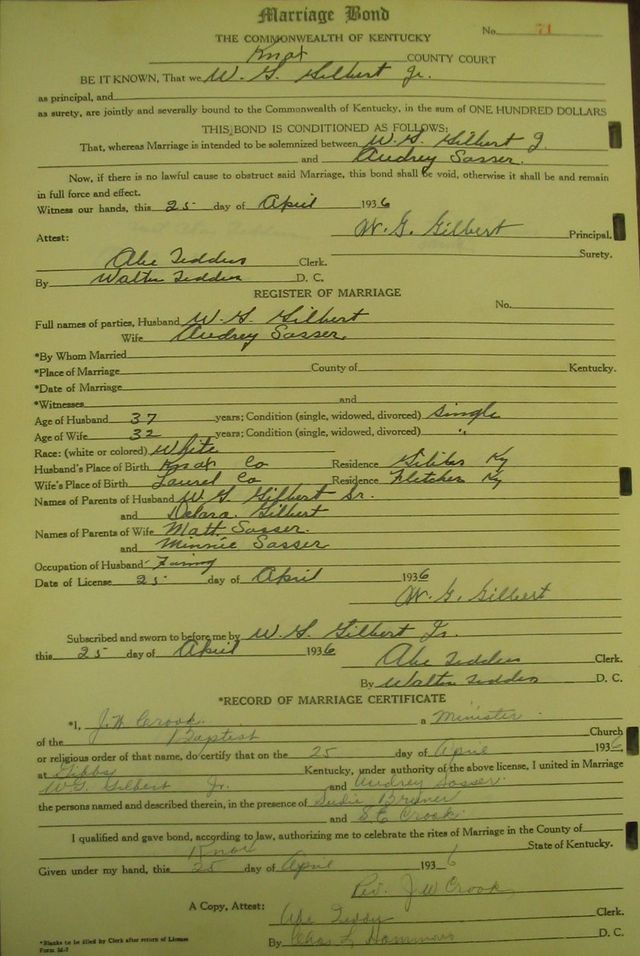 Marriage Bond
No. 71
THE COMMONWEALTH OF KENTUCKY
Knox COUNTY COURT
BE IT KNOWN, That we W. G. Gilbert Jr.
as principal, and
as surety, are jointly and severally bound to the Commonwealth of Kentucky, in the sum of ONE HUNDRED DOLLARS
THIS BOND IS CONDITIONED AS FOLLOWS:
That, whereas Marriage is intended to be solemnized between W. G. Gilbert J.
and Audrey Sasser.
Now, if there is no lawful cause to obstruct said Marriage, this bond shall be void, otherwise it shall be and remain
in full force and effect.
Witness our hands, this 25 day of April 1936
W. G. Gilbert Principal.
Attest:
Surety.
Abe Tedders Clerk.
By Walter Tedders D. C.
REGISTER OF MARRIAGE
No.
Full names of parties, Husband W. G. Gilbert
Wife Audrey Sasser.
*By Whom Married
*Place of Marriage County of Kentucky.
*Date of Marriage
*Witnesses and
Age of Husband 37 years; Condition (single, widowed, divorced) Single
Age of Wife 32 years; Condition (single, widowed, divorced) "
Race: (white or colored) White
Husband's Place of Birth Knox Co Residence Ky
Wife's Place of Birth Laurel Co Residence Fletcher Ky
Names of Parents of Husband W. G. Gilbert Sr.
and Gilbert
Names of Parents of Wife Matt Sasser.
and Minnie Sasser
Occupation of Husband
Date of License 25 day of April 1936
W. G. Gilbert
Subscribed and sworn to before me by W. G. Gilbert Jr.
this 25 day of April 1936
Abe Tedders Clerk.
By Walter Tedders D. C.
*RECORD OF MARRIAGE CERTIFICATE
*I, J. W. Crook. a Minister
of the Baptist Church
or religious order of that name, do certify that on the 25 day of April 1936,
at Gibbs Kentucky, under authority of the above license, I united in Marriage
W. G. Gilbert Jr. and Audrey Sasser.
the persons named and described therein, in the presence of Sudie Bruner
and S. E. Crook.
I qualified and gave bond, according to law, authorizing me to celebrate the rites of Marriage in the County of
Knox State of Kentucky.
Given under my hand, this 25 day of April 1936
Rev. J W Crook
A Copy, Attest: Abe Teddy Clerk.
By Chas L. Hammons D. C.
*Blanks to be filled by Clerk after return of License